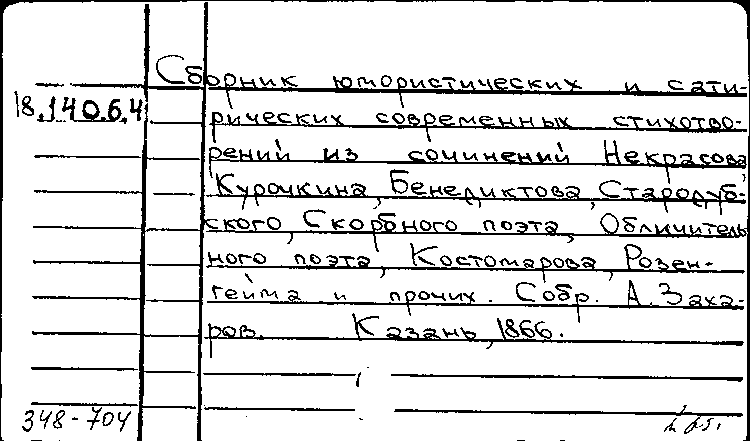 Сборник юмористических и сати-
18.140.6.4 рических современных стихотво-
рений из сочинений Некрасова,
Курочкина, Бенедиктова, Стародуб-
ского, Скорбного поэта, Обличитель
ного поэта, Костомарова, Розен-
гейма и прочих. Собр. А. Заха-
ров. Казань, 1866.
348-704